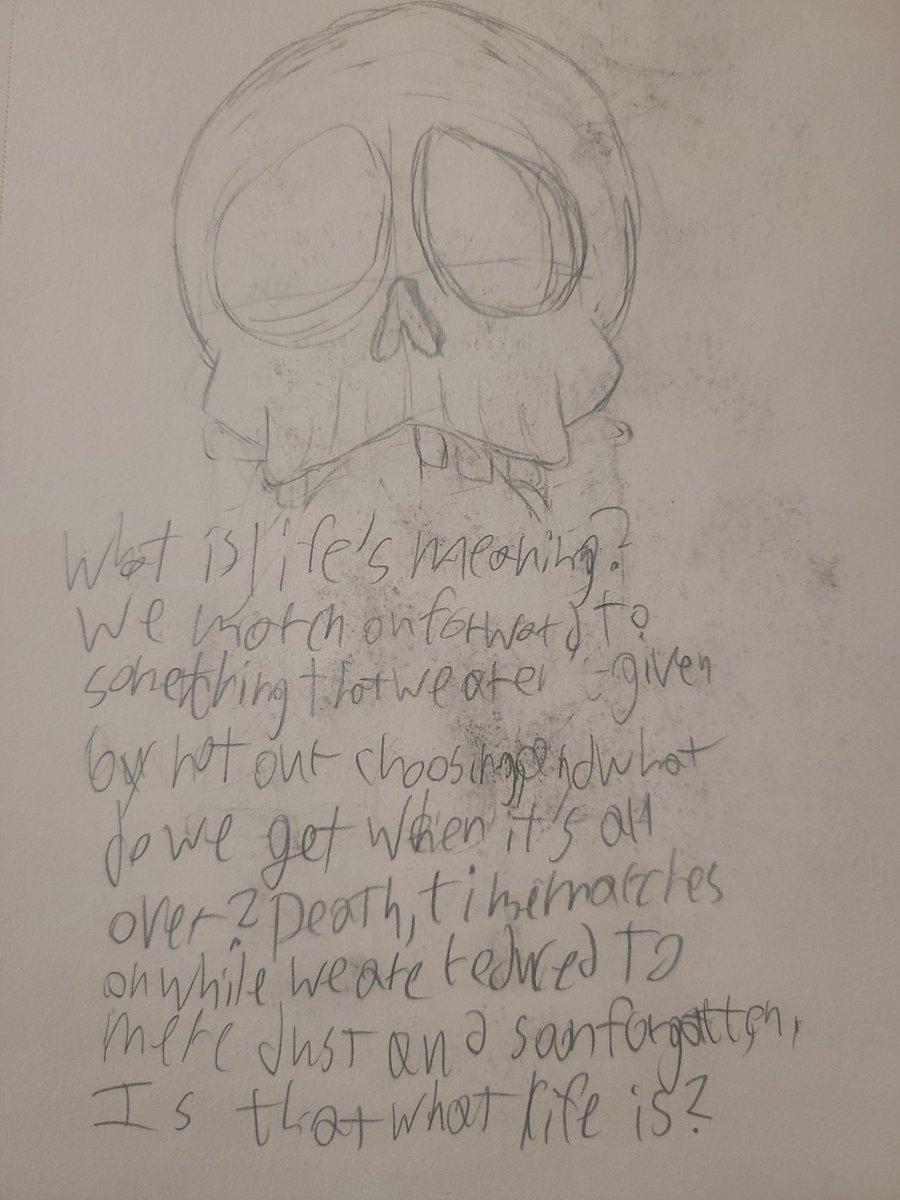 What is life's meaning?
We march on forward to
something that we are given
by not our choosing, and what
do we get when it's all
over? Death, time marches
on while we are reduced to
mere dust and soon forgotten,
Is that what life is?